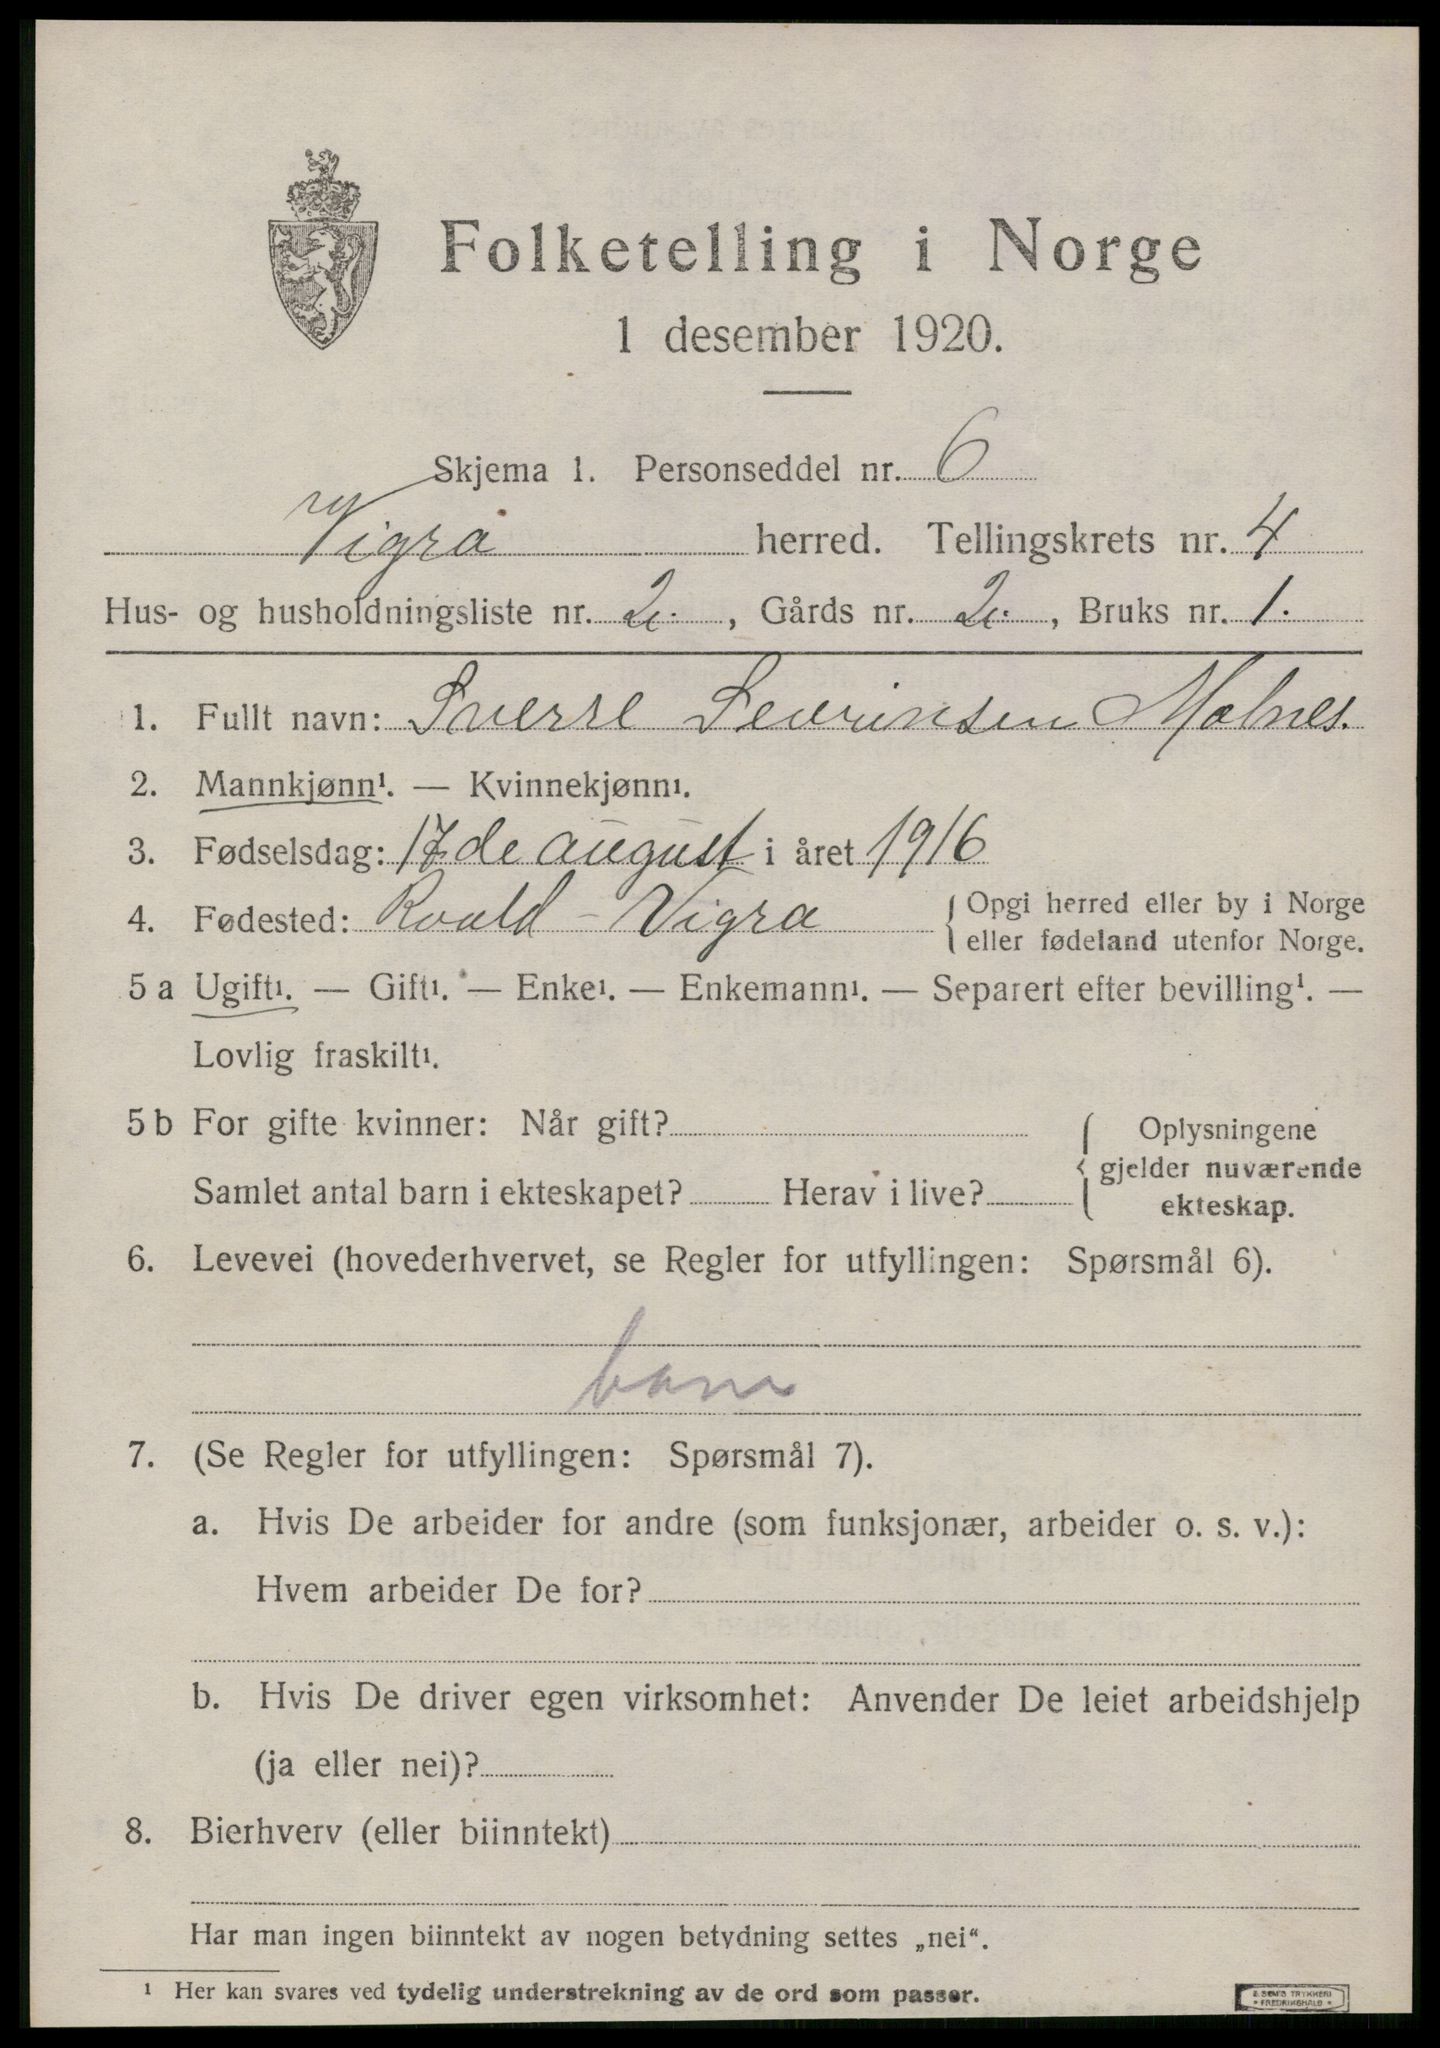 Folketelling i Norge
1 desember 1920.
Skjema 1. Personseddel nr. 6
Vigra herred. Tellingskrets nr. 4
Hus- og husholdningsliste nr. 2. , Gårds nr. 2. , Bruks nr. 1.
1. Fullt navn: Sverre Severinsen Molnes.
2. Mannkjønn¹. — Kvinnekjønn¹.
3. Fødselsdag: 17de august i året 1916
4. Fødested: Roald - Vigra { Opgi herred eller by i Norge
eller fødeland utenfor Norge.
5 a Ugift¹. — Gift¹. — Enke¹. — Enkemann¹. — Separert efter bevilling¹. —
Lovlig fraskilt¹.
5 b For gifte kvinner: Når gift? { Oplysningene
gjelder nuværende
Samlet antal barn i ekteskapet? Herav i live?
ekteskap.
6. Levevei (hovederhvervet, se Regler for utfyllingen: Spørsmål 6).
barn
7. (Se Regler for utfyllingen: Spørsmål 7).
a. Hvis De arbeider for andre (som funksjonær, arbeider o. s. v.):
Hvem arbeider De for?
b. Hvis De driver egen virksomhet: Anvender De leiet arbeidshjelp
(ja eller nei)?
8. Bierhverv (eller biinntekt)
Har man ingen biinntekt av nogen betydning settes „nei“.
¹ Her kan svares ved tydelig understrekning av de ord som passer.
E. SEM'S TRYKKERI
* FREDRIKSHALD *